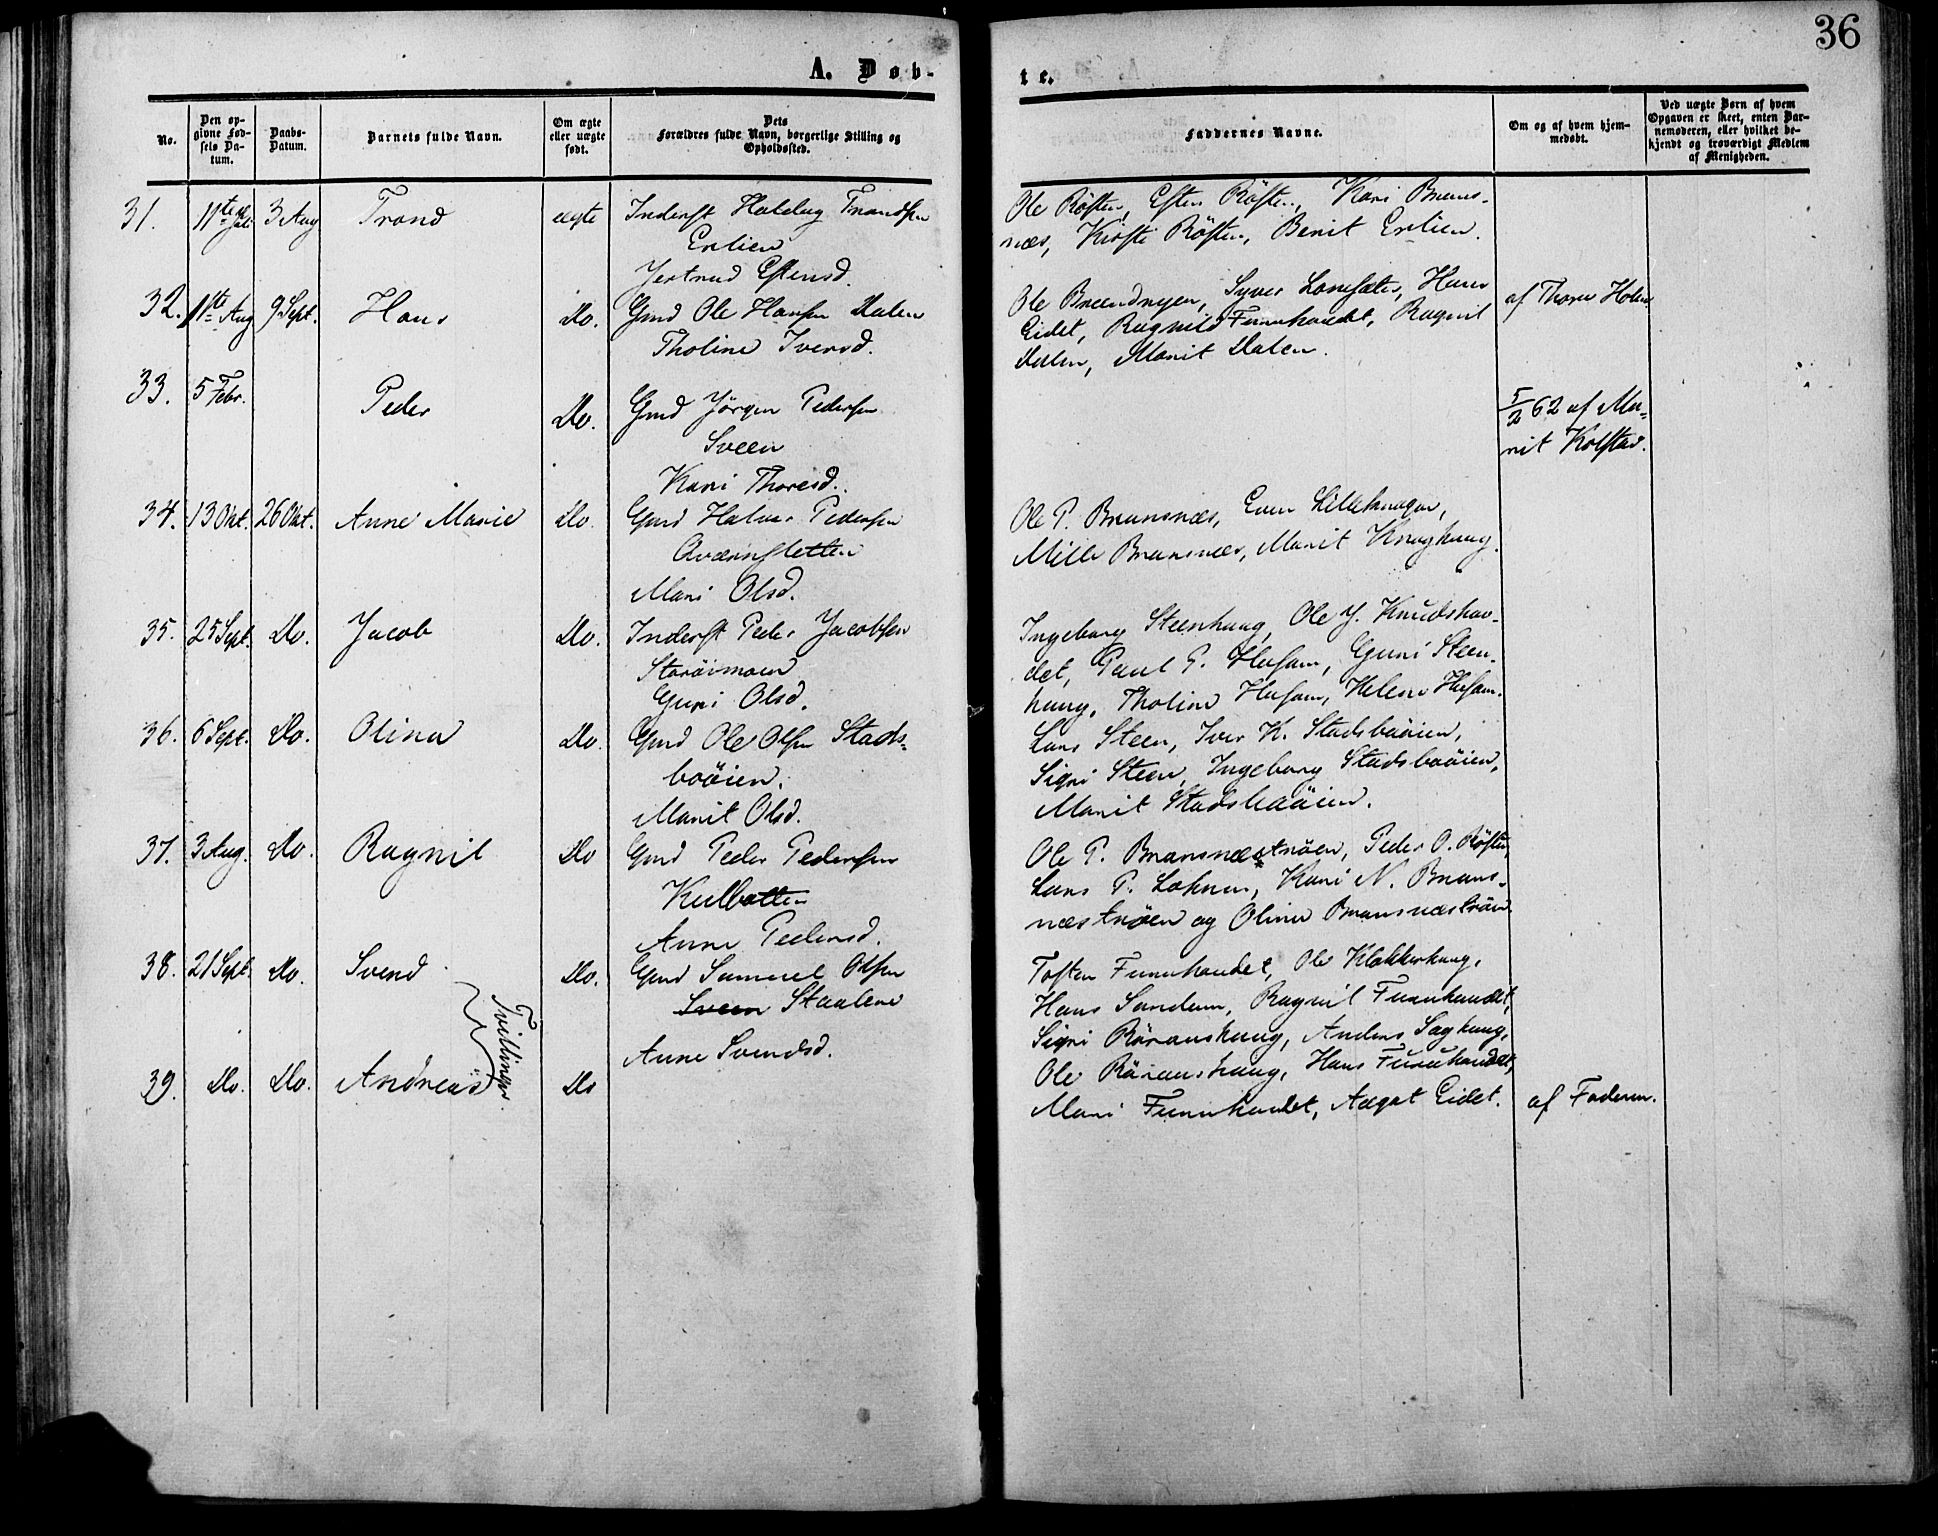 36
A. Døb-
te.
No.
Den op-
givne Fød-
sels Da-
tum.
Daabs-
Datum.
Barnets fulde Navn.
Om ægte
eller uægte
født.
Dets
Forældres fulde Navn, borgerlige Stilling og
Opholdssted.
Faddernes Navne.
Om og af hvem hjem-
medøbt.
Ved uægte Børn af hvem
Opgaven er skeet, enten Bar-
nemoderen, eller hvilket be-
kjendt og troværdigt Medlem
af Menigheden.
31. 11te Juli 3 Aug Trond ægte Inderst Haldog Trondsen
Enlien
Jertrud Estensd.
Ole Røsten, Esten Røsten, Kari Bruns-
næs, Kirsti Røsten, Berit Enlien.
32. 11te Aug 9 Sept. Hans Do. Gmd Ole Hansen Dalen
Tholine Iversd.
Ole Syver Hans
Eidet, Ragnild Furuhoudet, Ragnil
Dalen, Marit Dalen.
af Thore Holen
33. 5 Febr. Peder Do. Gmd Jörgen Pedersen
Sveen
Kari Thoresd.
5/2 62 af Ma-
rit Kolstad.
34. 13 Okt. 26 Okt. Anne Marie Do. Gmd Halvor Pedersen
Qværnsletten
Mari Olsd.
Ole P. Brunsnæs, Even Lillehaugen,
Mille Brunsnæs, Marit Krughaug.
35. 25 Sept. Do. Jacob Do. Inderst Peder Jacobsen
Storöimoen
Guri Olsd.
Ingeborg Steenhaug, Ole J. Knudshou-
det, Paul P. Husum, Guri Steen-
haug, Tholine Husum, Helene Husum.
36. 6 Sept. Do. Olina Do. Gmd Ole Olsen Stads-
buöien.
Marit Olsd.
Lars Steen, Iver K. Stadsbuöien,
Sigri Steen, Ingeborg Stadsbuöien,
Marit Stadsbuöien.
37. 3 Aug. Do. Ragnil Do Gmd Peder Pedersen
Kulbotten
Anne Pedersd.
Ole P. Brunsnæströen, Peder O. Røsten,
Lars P. Kari N. Bruns-
næströen og Oline Brunsnæströen.
38. 21 Sept. Do. Svend Do. Gmd Samuel Olsen
Sveen Staalene
Anne Svendsd.
Tvillinger.
Tosten Furuhoudet, Ole Klokkerhaug,
Hans Sandum, Ragnil Furuhoudet,
Sigri Röranshaug, Anders Saghaug,
39. Do. Do. Andreas Do
Ole Röranshaug, Hans Furuhoudet,
Mari Furuhoudet, Aagot Eidet.
af Faderen.